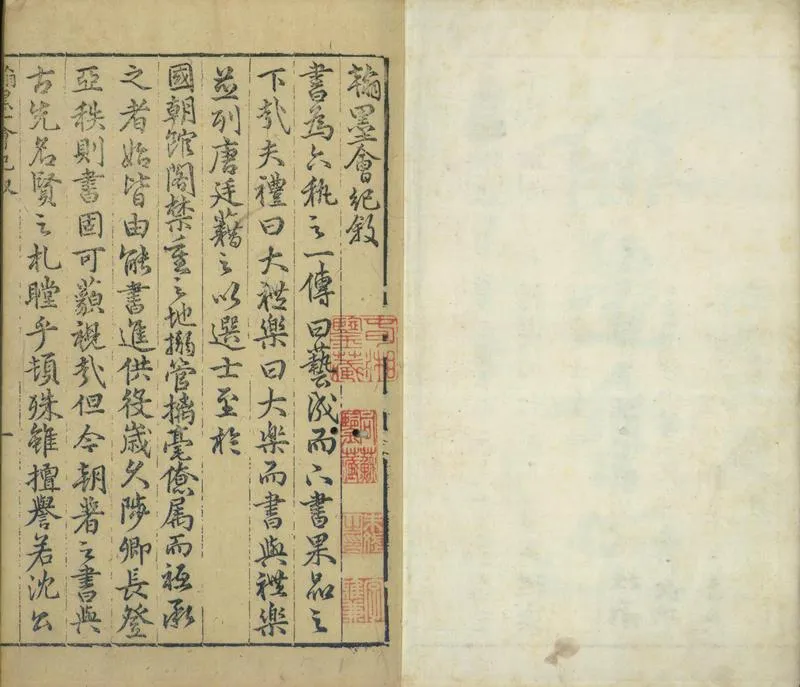 翰墨會紀敘
書為六秇之一傳曰藝成而下書果品之
下㢤夫禮曰大禮樂曰大樂而書與禮樂
並列唐廷藉之以選士至於
國朝館閣禁重之地搦管摛毫僚属而祗承
之者始皆由能書進供役歲久陟卿長登
亞秩則書固可藐視㢤但今朝著之書與
古先名賢之札瞠乎頓殊雖擅譽若沈公
翰墨會紀叙
一